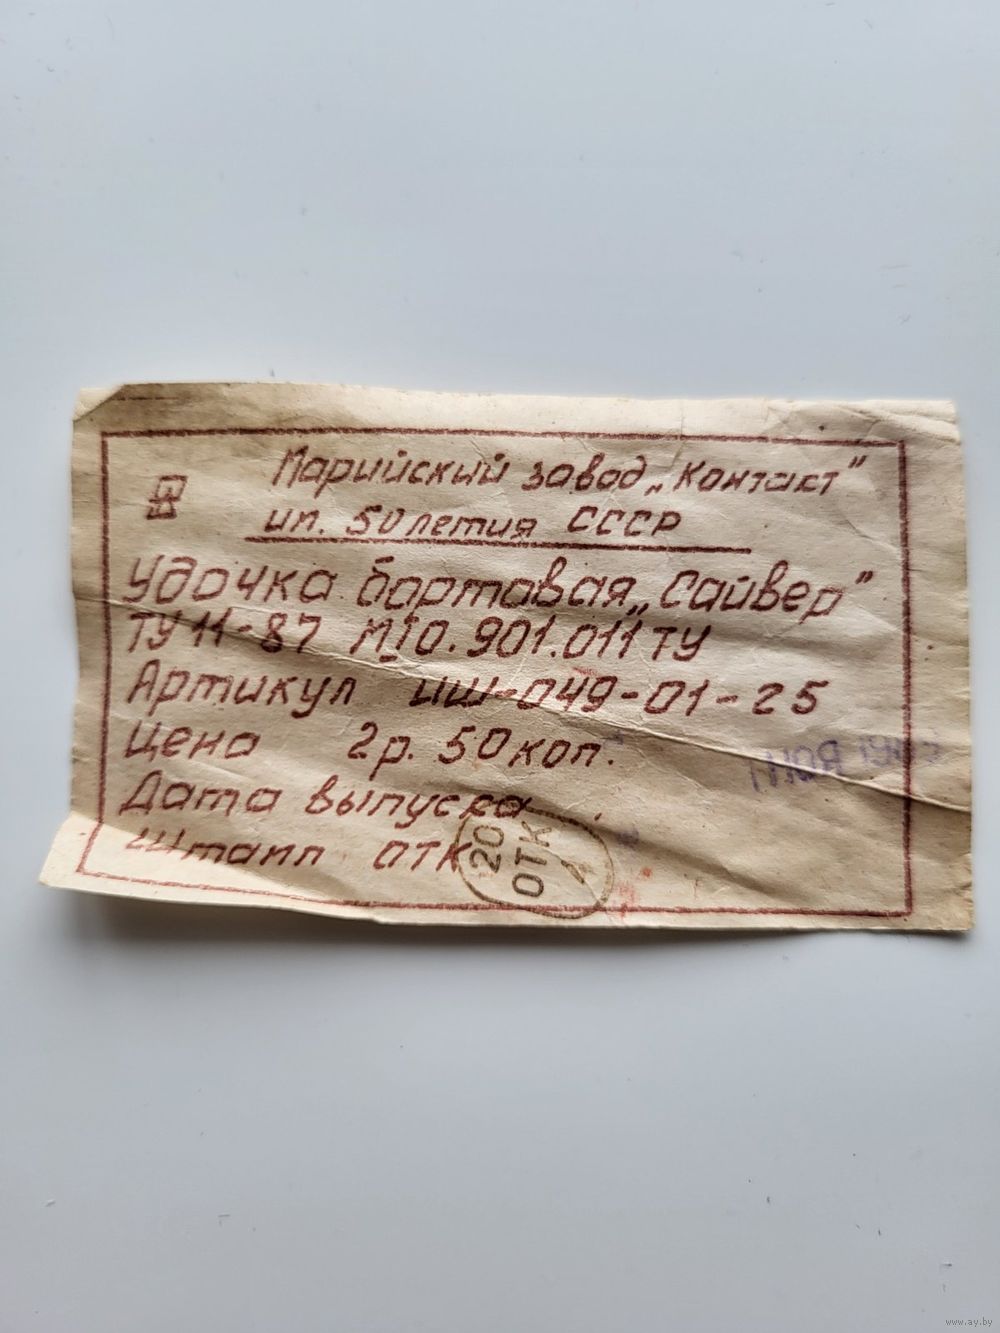 Марийский завод „Контакт"
им. 50летия СССР
Удочка бортовая „Сайвер"
ТУ 11-87 МЮ.901.011 ТУ
Артикул ИШ-049-01-25
Цена 2р. 50коп.
Дата выпуска
Штамп ОТК
20
ОТК
www.ay.by